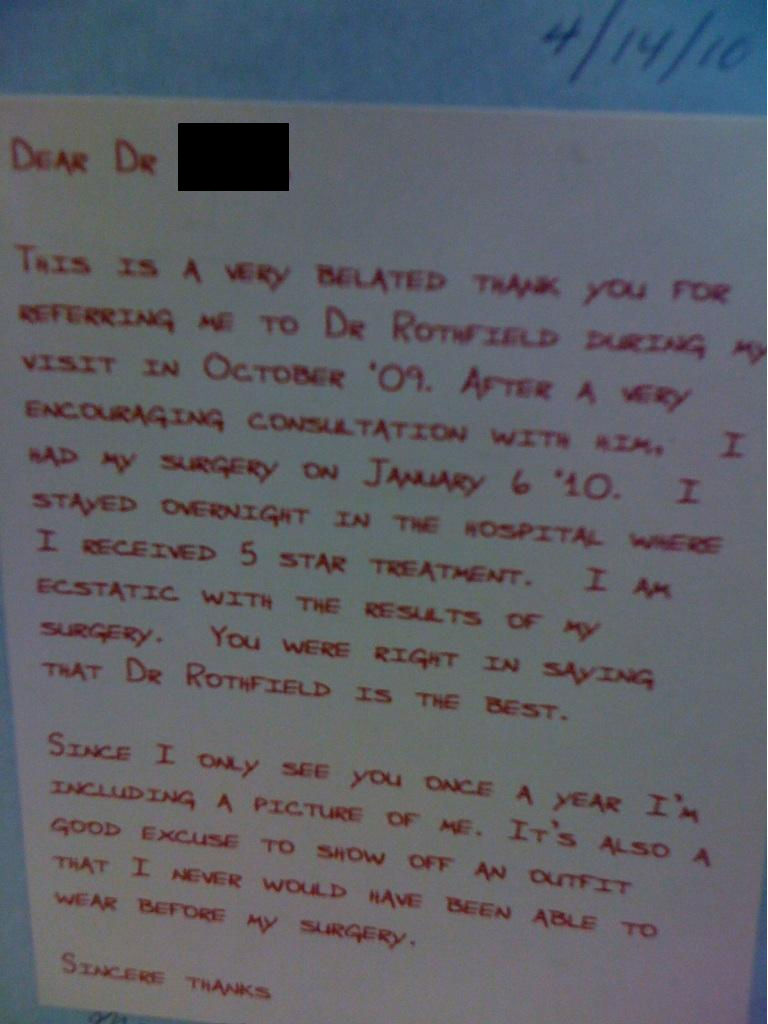 4/14/10
DEAR DR
THIS IS A VERY BELATED THANK YOU FOR
REFERRING ME TO DR ROTHFIELD DURING MY
VISIT IN OCTOBER '09. AFTER A VERY
ENCOURAGING CONSULTATION WITH HIM, I
HAD MY SURGERY ON JANUARY 6 '10. I
STAYED OVERNIGHT IN THE HOSPITAL WHERE
I RECEIVED 5 STAR TREATMENT. I AM
ECSTATIC WITH THE RESULTS OF MY
SURGERY. YOU WERE RIGHT IN SAYING
THAT DR ROTHFIELD IS THE BEST.
SINCE I ONLY SEE YOU ONCE A YEAR I'M
INCLUDING A PICTURE OF ME. IT'S ALSO A
GOOD EXCUSE TO SHOW OFF AN OUTFIT
THAT I NEVER WOULD HAVE BEEN ABLE TO
WEAR BEFORE MY SURGERY.
SINCERE THANKS